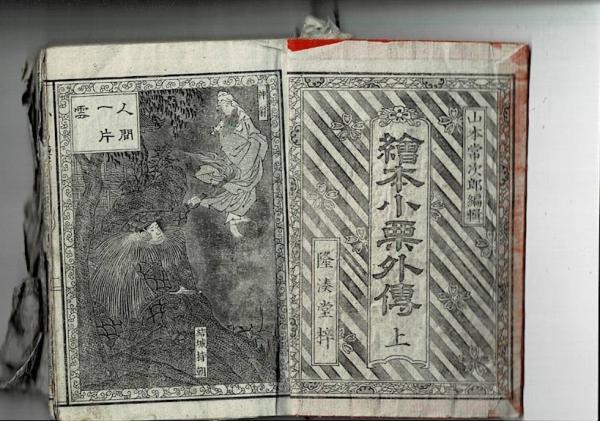 山本常次郎編輯
繪本小栗外傳 上
隆湊堂梓
人間
一片
雲
結城持朝